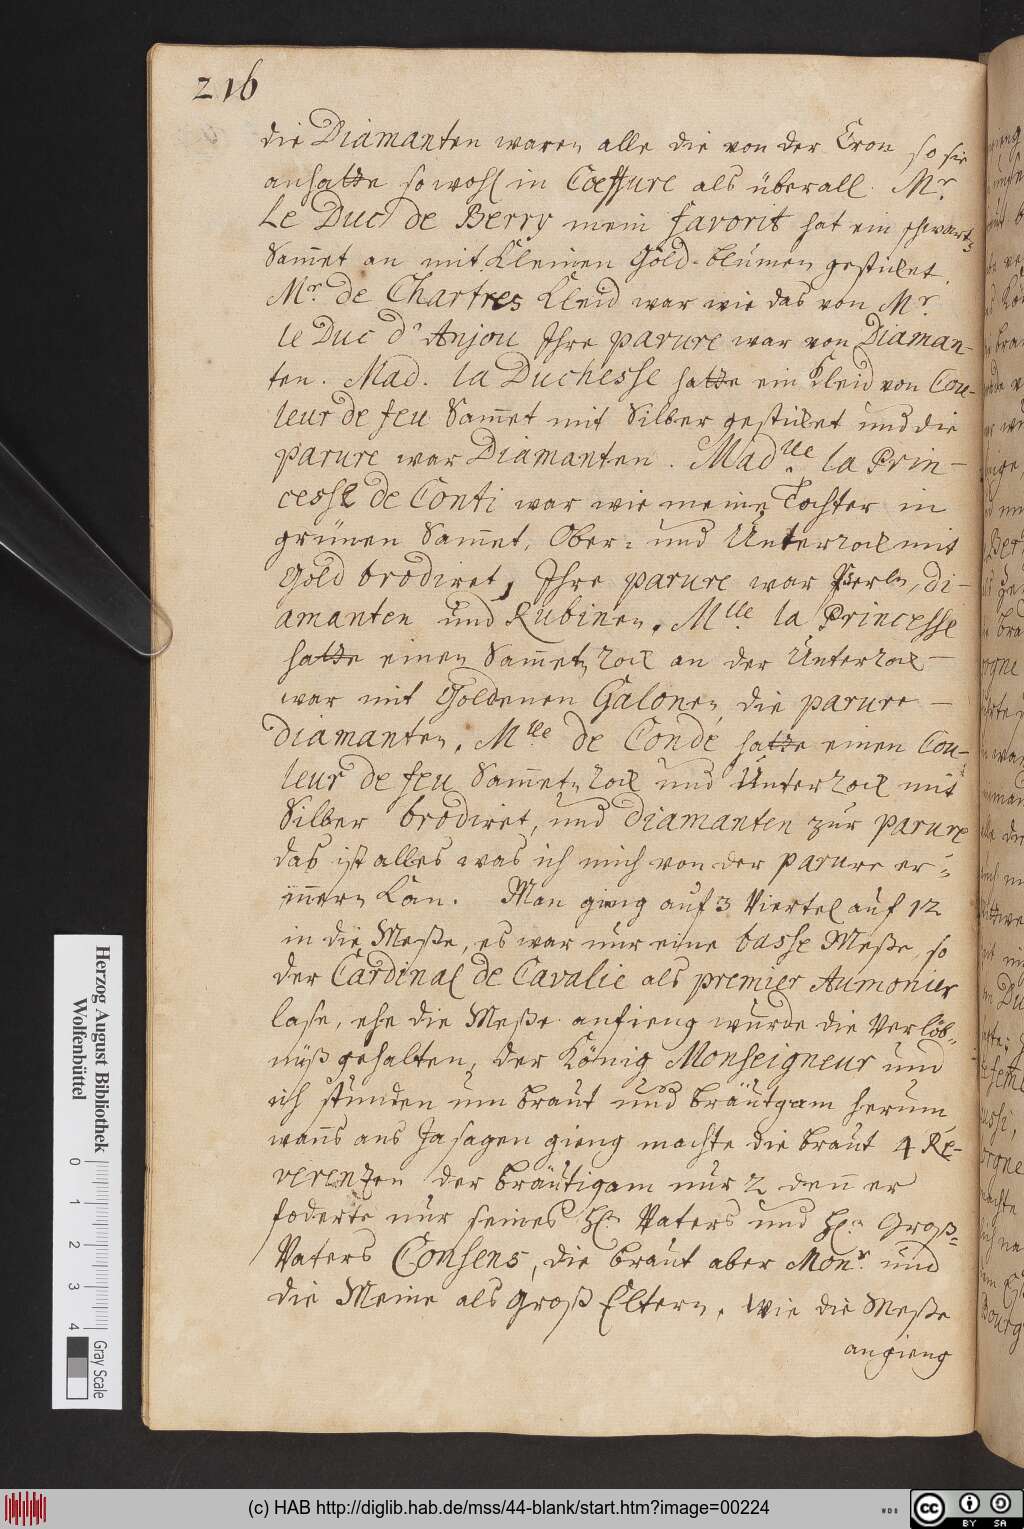 216
die Diamanten waren alle die von der Cron so sie
anhatte so wohl in Coeffure als überall. Mr.
Le Duc de Berry mein favorit hat ein schwartz
Sam̅et an mit kleinen Gold-blumen gestickt.
Mr. de Chartres Kleid war wie das von Mr.
le Duc d'Anjou Ihre parure war von Diaman-
ten. Mad. la Duchesse hatte ein Kleid von Cou-
leur de feu Sam̅et mit Silber gestickt und die
parure war Diamanten. Madlle. la Prin-
cesse de Conti war wie meine Tochter in
grünen Sam̅et, Ober- und Unterrock mit
Gold brodiret, Ihre parure war Perln, di-
amanten und Rubinen. Mlle. la Princesse
hatte einen Sam̅etn rock an der Unterrock
war mit Goldenen Galonen, die parure
diamanten. Mlle. de Condé hatte einen Cou-
leur de feu Sam̅etn rock und Unterrock mit
Silber brodiret, und diamanten zur parure
das ist alles was ich mich von der parure er-
in̅ern kan. Man gieng auf 3 Viertel auf 12
in die Meße, es war nur eine basse Meße, so
der Cardinal de Cavalie als premier Aumonier
lase, ehe die Meße anfieng wurde die Verlöb-
nüß gehalten, der König Monseigneur und
ich stunden um braut und bräutgam herum
wan̅s ans Ja sagen gieng machte die braut 4 Re-
verentzen der bräutigam nur 2 den̅ er
foderte nur seines H. Vaters und H. Groß-
Vaters Consens, die braut aber Monr. und
die Meine als Groß Eltern. Wie die Meße
angieng
Herzog August Bibliothek
Wolfenbüttel
0 1 2 3 4
Gray Scale
(c) HAB http://diglib.hab.de/mss/44-blank/start.htm?image=00224
WDB
cc BY SA